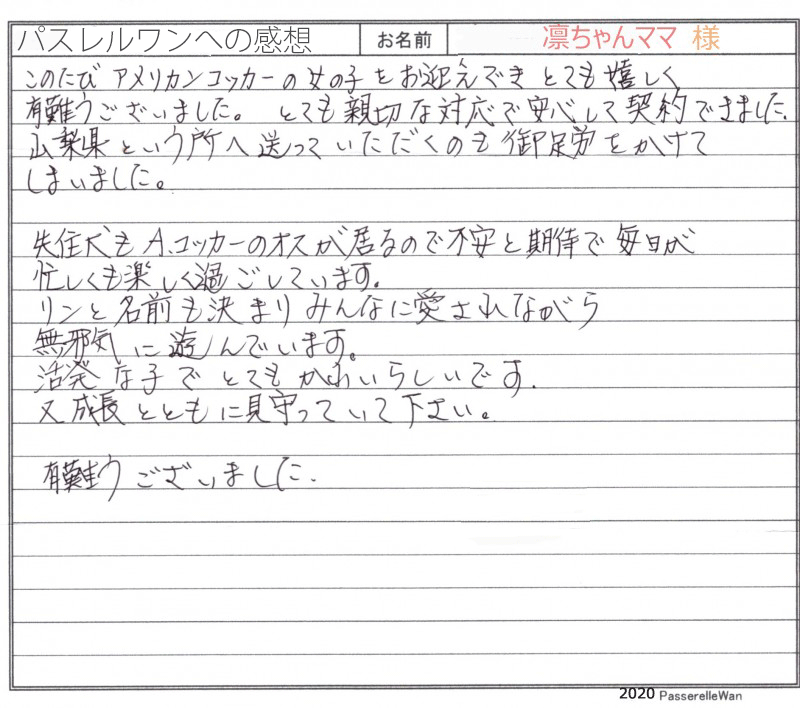 パスレルワンへの感想 お名前 凛ちゃんママ 様
このたび アメリカンコッカーの女の子をお迎えでき とても嬉しく
有難うございました。 とても親切な対応で安心して契約できました.
山梨県という所へ送っていただくのも御足労をかけて
しまいました。
先住犬もA.コッカーのオスが居るので不安と期待で毎日が
忙しくも楽しく過ごしています.
リンと名前も決まりみんなに愛されながら
無邪気に遊んでいます。
活発な子でとてもかわいらしいです.
又成長とともに見守っていて下さい。
有難うございました.
2020 PasserelleWan